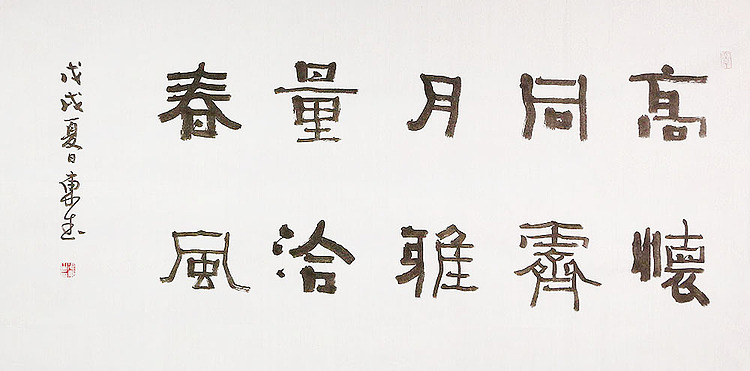 高懷
同霽
月雅
量洽
春風
戊戌夏日東